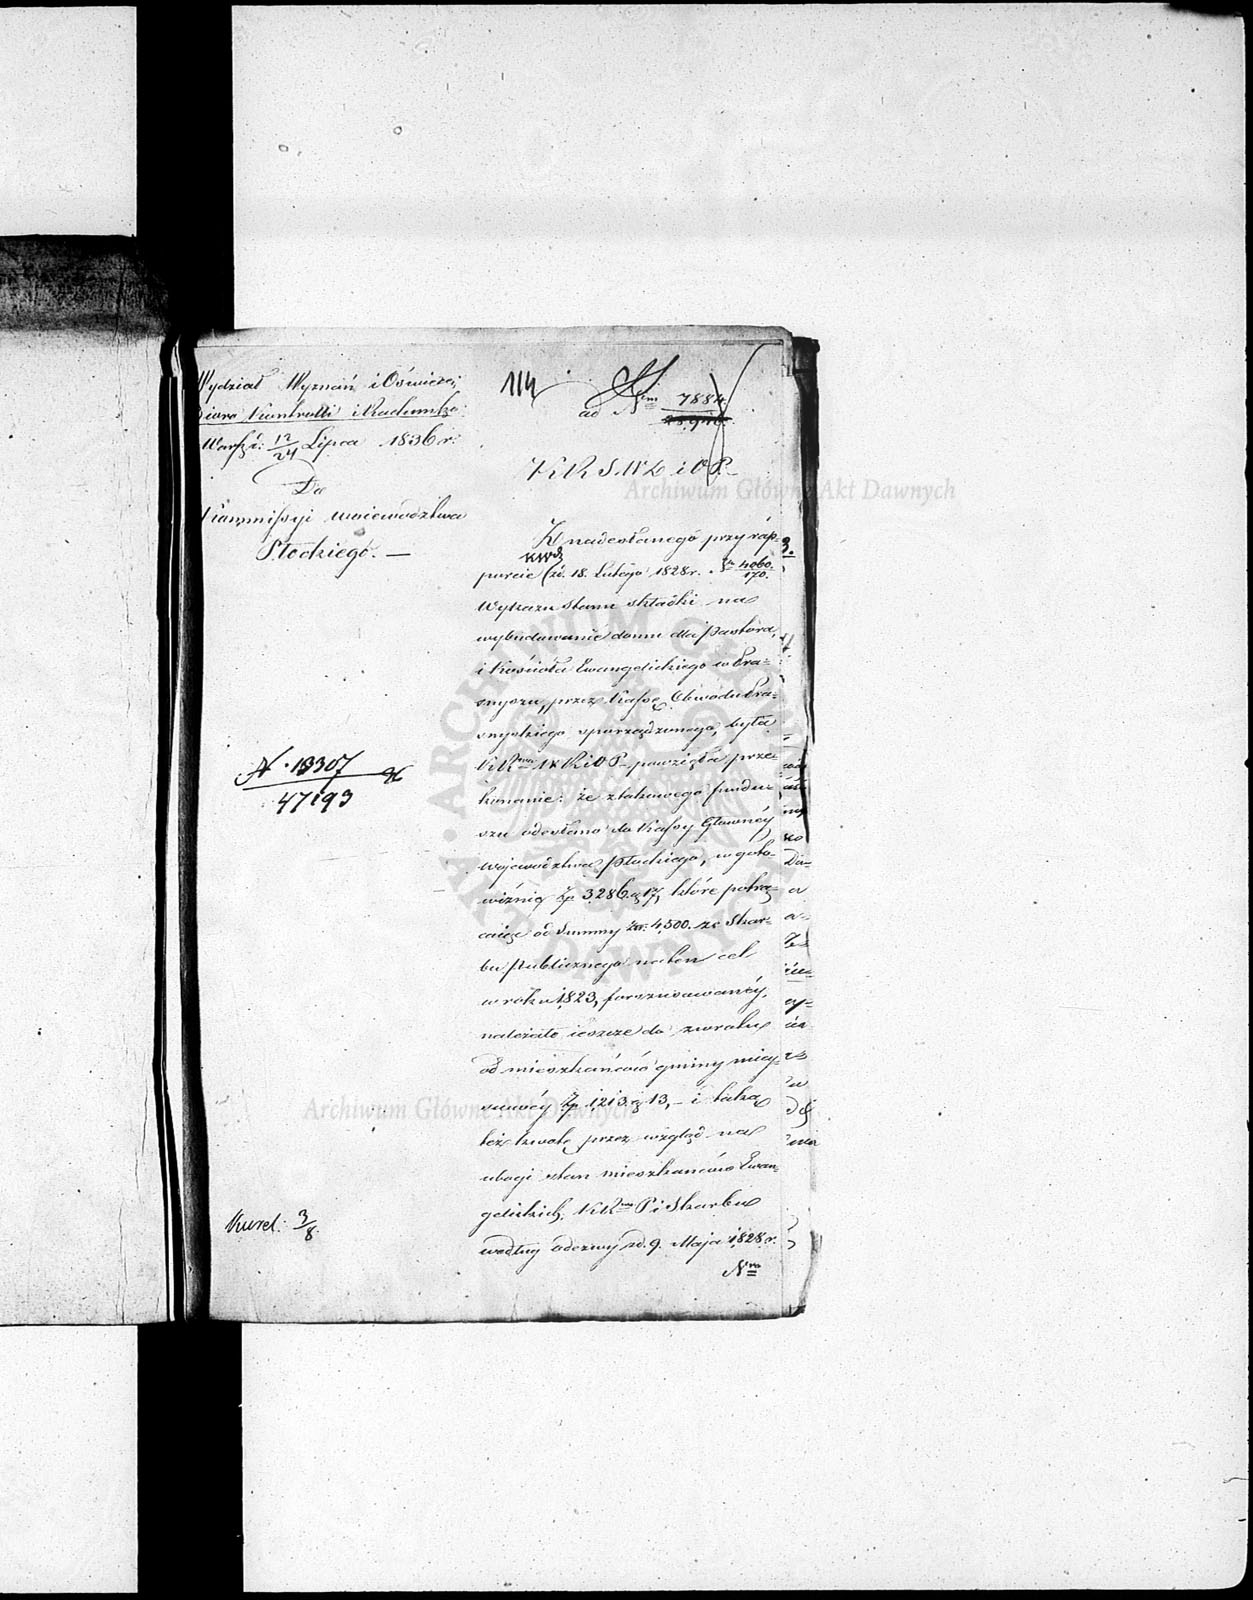 Wydział Wyznań i Oświece:
Biuro Kontrolli i Rachunko:
Warsz: d: 12/24 Lipca 1836 r:
Do
Kommissyi Województwa
Płockiego. —
N. 18307
47193
Kurel: 3/8.
114
ad Nrm 7884.
KRSWD i OP.
Z nadesłanego przy rap-
porcie KWdz (z d. 18. Lutego 1828 r. Nr 4060/170.
Wykazu stanu składki na
wybudowanie domu dla Pastora,
i Kościoła Ewangelickiego w Pra-
snyszu, przez Kassę Obwodu Pra-
snyskiego sporządzonego, była
KR WR i OP. powzięła prze-
konanie: że z takowego fundu-
szu odesłano do Kassy Głównéy
Województwa Płockiego, w goto-
wiźnie Zp 3,286. g 17, które potrą-
caiąc od Summy Zł: 4,500. ze Skar-
bu Publicznego na ten cel
w roku 1823, forszusowanéy,
należało ieszcze do zwrotu
od mieszkańców gminy miey-
scowéy Zp 1,213. g 13, – i taką
też kwotę przez wzgląd na
ubogi stan mieszkańców Ewan-
gelickich, KR P i Skarbu
według odezwy z d. 9. Maja 1828 r.
Nro
Archiwum Główne Akt Dawnych
Archiwum Główne Akt Dawnych
ARCHIWUM GŁÓWNE AKT DAWNYCH